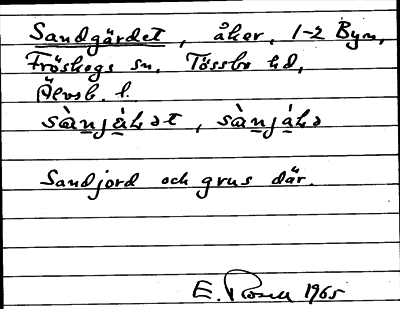 Sandgärdet, åker, 1-2 Byn,
Fröskogs sn, Tössbo hd,
Älvsb. l.
sànjàḷət, sànjàḷə
Sandjord och grus där.
E. Rosell 1965